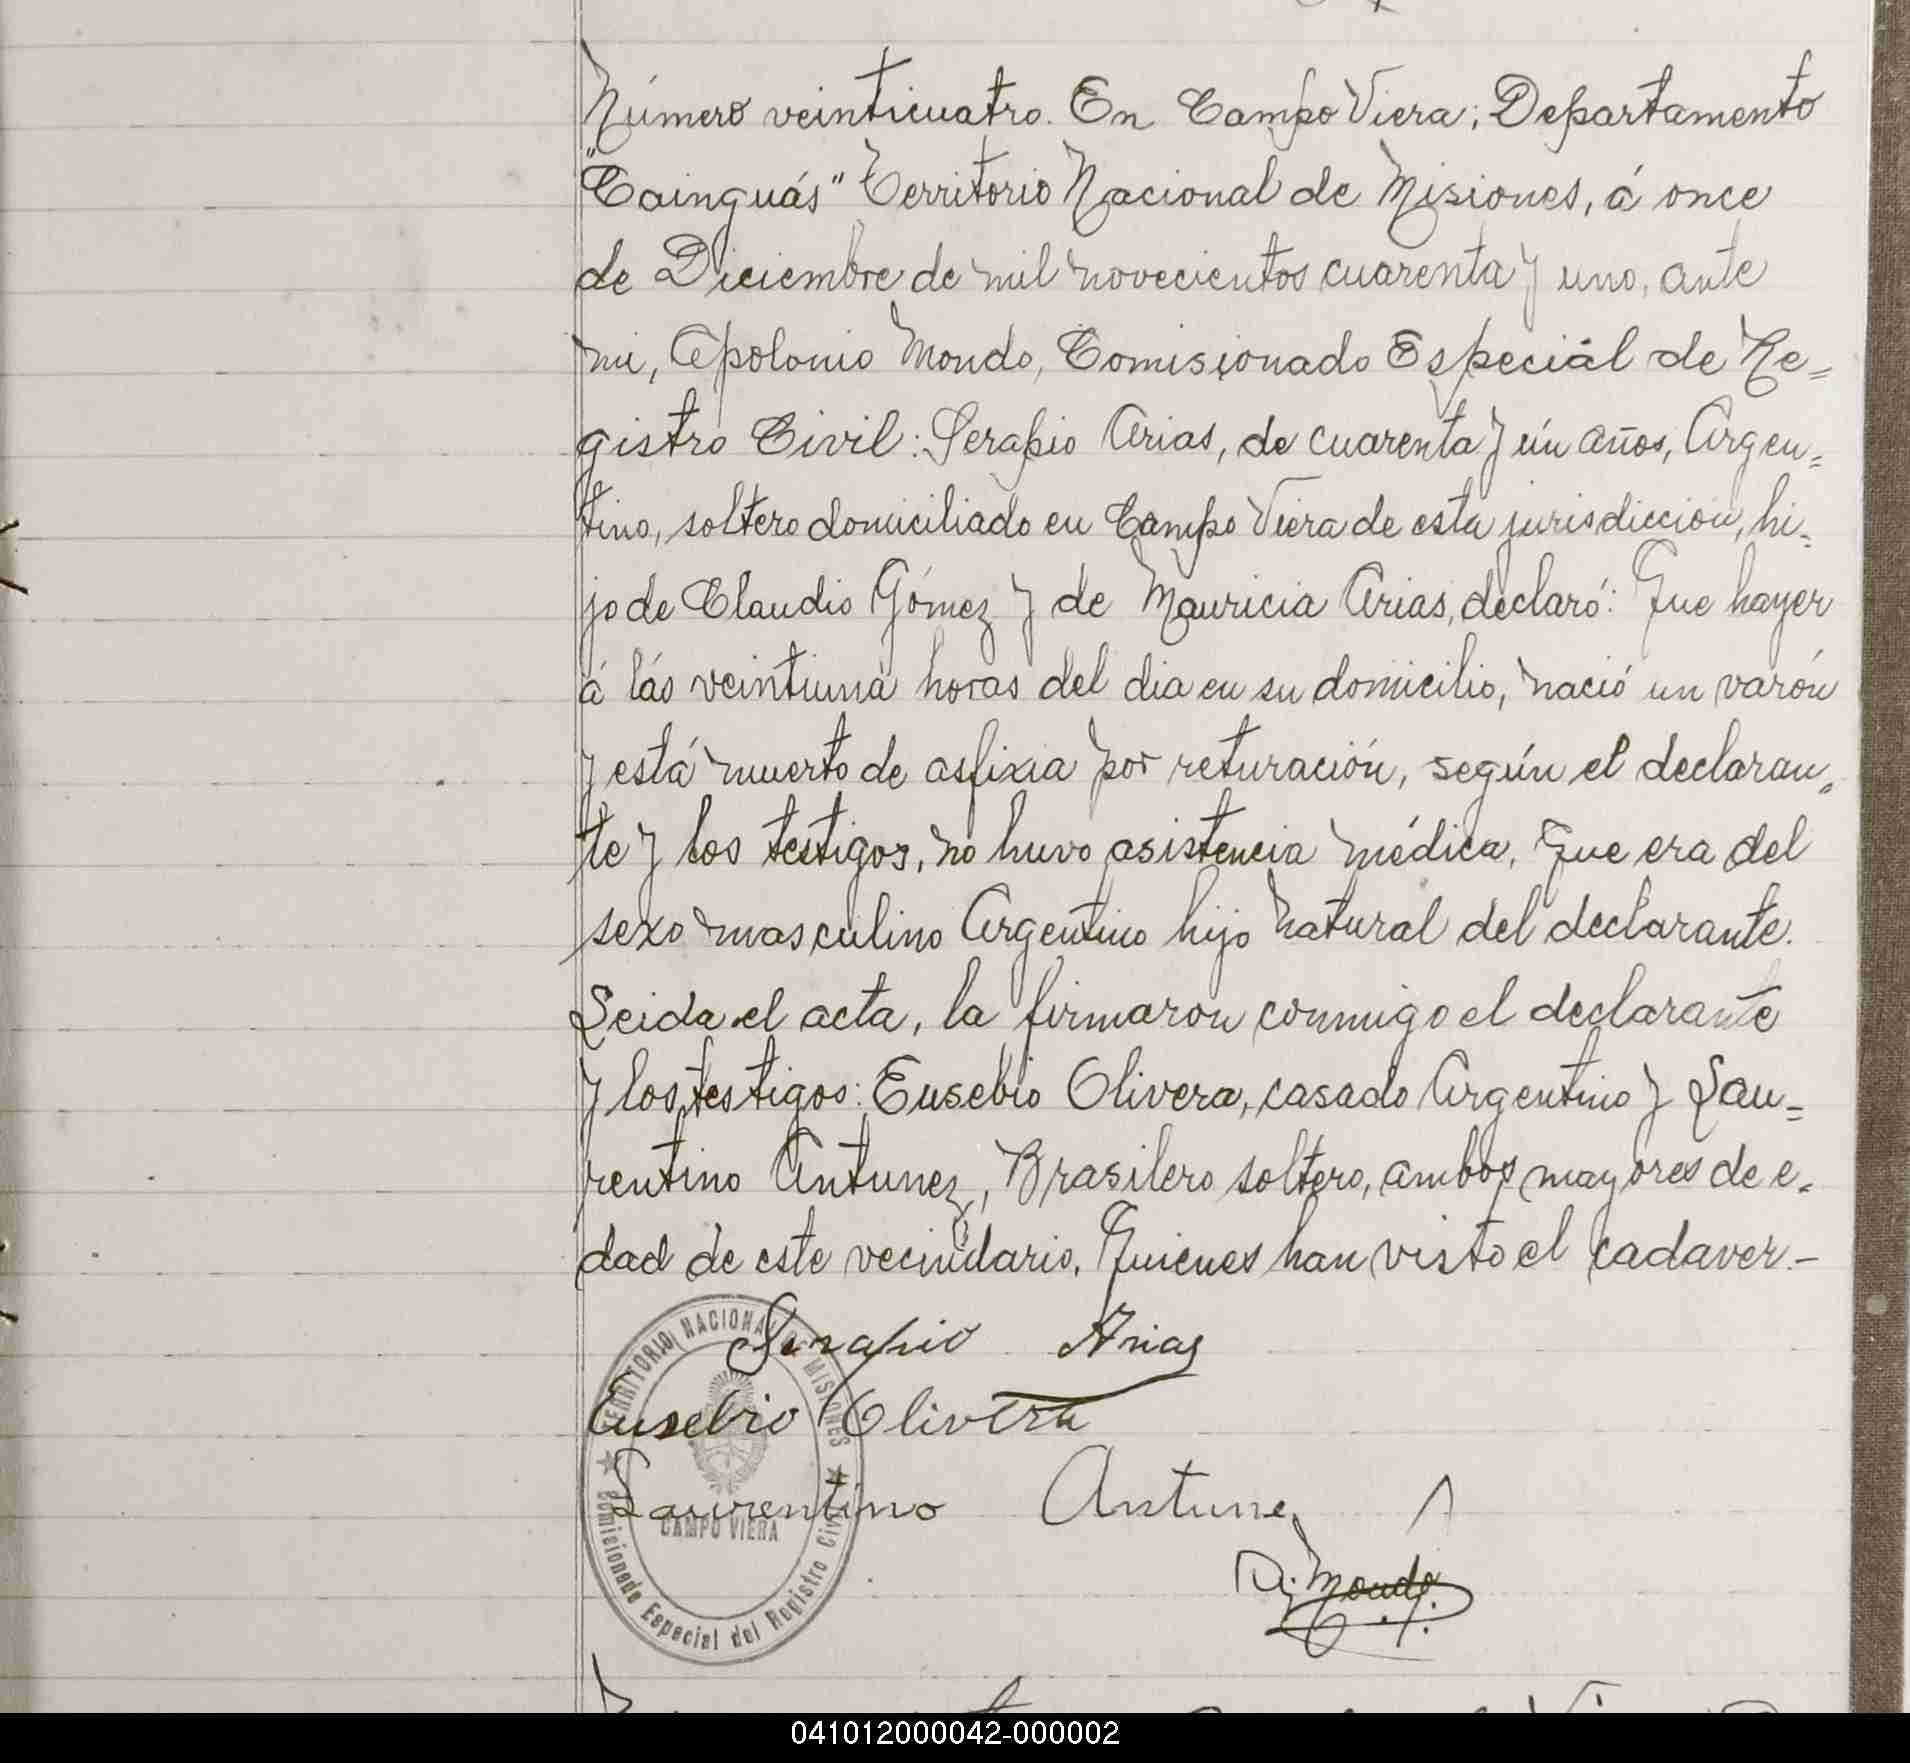 Número veinticuatro. En Campo Viera; Departamento
"Cainguás" Territorio Nacional de Misiones, á once
de Diciembre de mil novecientos cuarenta y uno, ante
mi, Apolonio Mondo, Comisionado Especiál de Re=
gistro Civil: Serapio Arias, de cuarenta y ún años, Argen=
tino, soltero domiciliado en Campo Viera de esta jurisdiccion, hi=
jo de Claudio Gómez y de Mauricia Arias, declaró: Que hayer
á lás veintiuna horas del dia en su domicilio, nació un varón
y está muerto de asfixia por returación, según el declaran=
te y los testigos, no huvo asistencia médica, que era del
sexo masculino Argentino hijo natural del declarante.
Leida el acta, la firmaron conmigo el declarante
y los testigos: Eusebio Olivera, casado Argentino y Lau=
rentino Antunez, Brasilero soltero, ambos mayores de e=
dad de este vecindario, Quienes han visto el cadaver.-
Serapio Arias
Eusebio Olivera
Laurentino Antunez
Mondo
TERRITORIO NACIONAL DE MISIONES
CAMPO VIERA
Comisionado Especial del Registro Civil
041012000042-000002